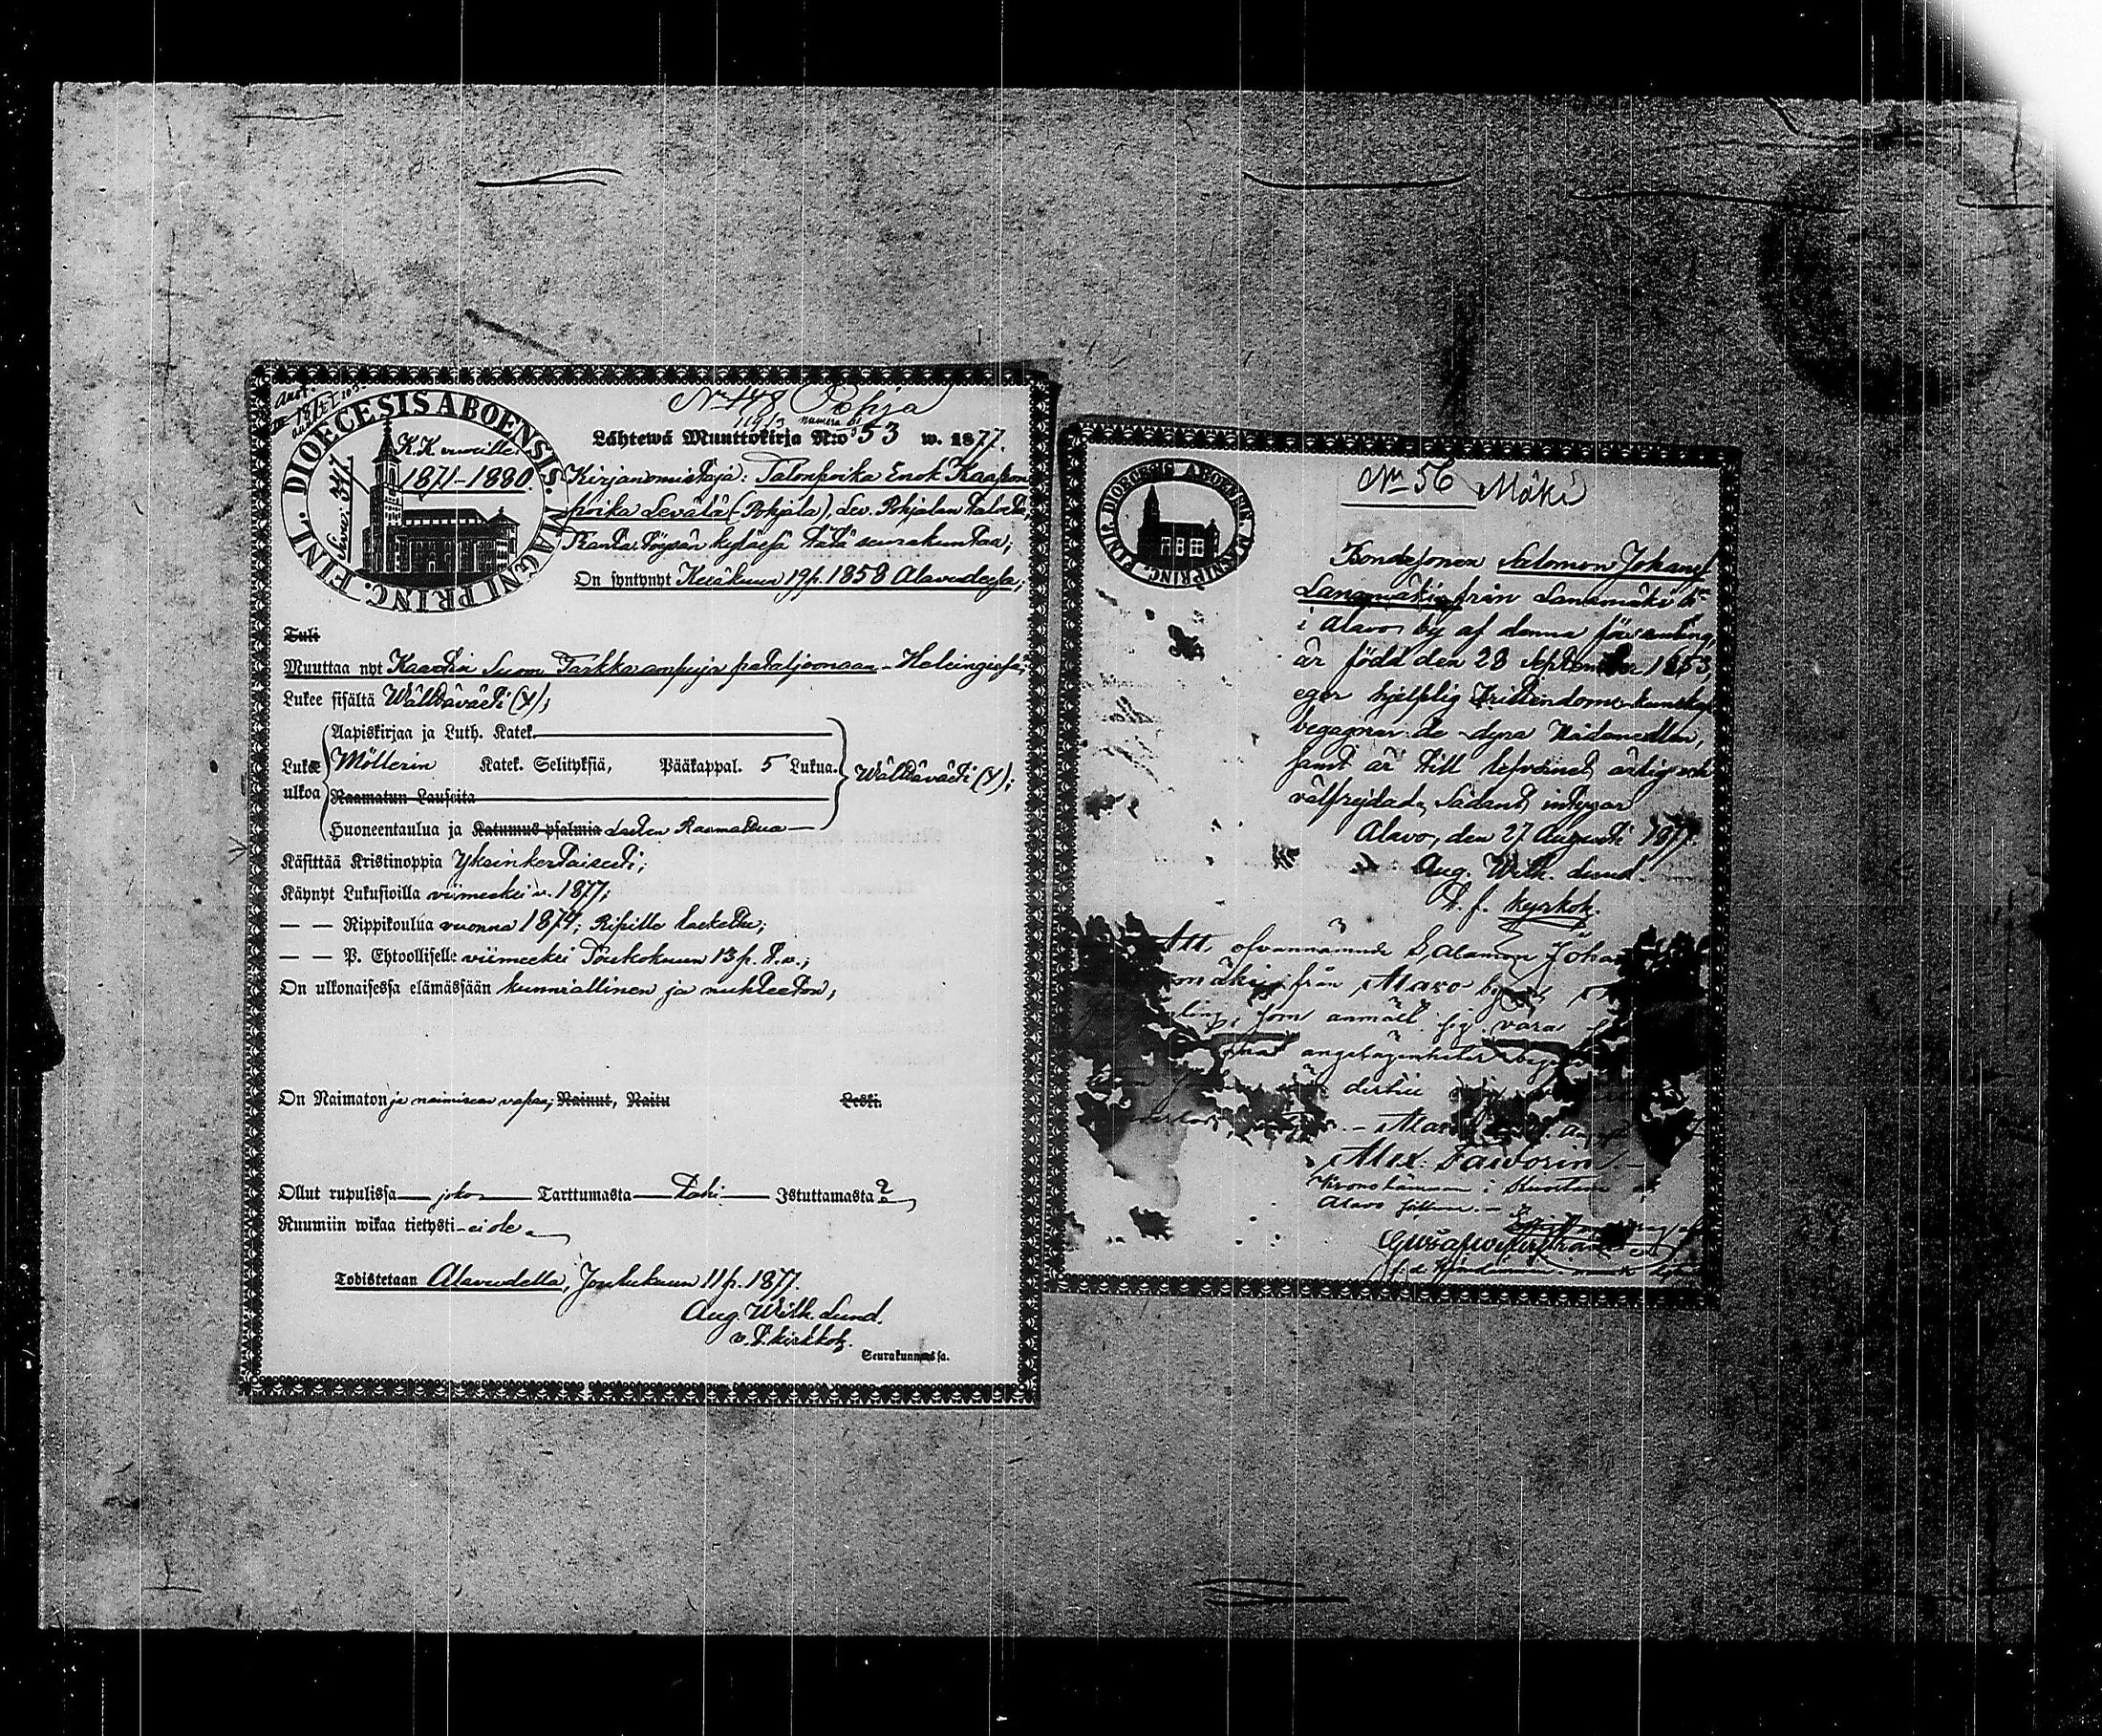 DIOECESIS ABOENSIS. MAGNI PRINC. FINL.
K.K. vuosille
1871-1880.
Sivu: 347
No 448 Pohja
119/3 numera
Lähtewä Muuttokirja N:o 53 w. 1877.
Kirjanomistaja: Talonpoika Enok Kaapon
poika Levälä (Pohjala), Lev. Pohjalan talosta,
Ranta Töysän kylässä tätä seurakuntaa;
On syntynyt Kesäkuun 19 p. 1858 Alavudella;
Tuli
Muuttaa nyt Kaartin Suom. Tarkk'ampuja pataljoonaan - Helsingissä;
Lukee sisältä Wälttävästi (x);
Aapiskirjaa ja Luth. Katek.
Lukee ulkoa Möllerin Katek. Selityksiä, Pääkappal. 5 Lukua. Wälttävästi (x);
Raamatun Lauseita
Huoneentaulua ja Katumus psalmia Lasten Raamattua —
Käsittää Kristinoppia Yksinkertaisesti;
Käynyt Lukusioilla viimeksi v. 1877;
— — Rippikoulua vuonna 1874; Ripille laskettu;
— — P. Ehtoolliselle viimeksi Toukokuun 13 p. t.v.;
On ulkonaisessa elämässään kunniallinen ja nuhteeton;
On Naimaton ja naimisen vapaa; Nainut, Naitu Leski.
Ollut rupulissa — joko — Tarttumasta — tahi — Istuttamasta ?
Ruumiin wikaa tietysti - ei ole
Todistetaan Alavudella, Joulukuun 11 p. 1877.
Aug. Wilh. Lund.
v. t. kirkkoh.
Seurakunnassa.
DIOECESIS ABOENSIS. MAGNI PRINC. FINL.
No 56 Mäki
Bondesonen Salomon Johans
Lanamäki från Lanamäki
i Alavo by af denna församling,
är född den 28 September 1853,
eger hjelplig Kristendoms kunskap
begagnar de dyra Nådamedlen,
samt är till lefvernet ärlig och
välfrejdad, Sådant intygar
Alavo, den 27 Augusti 1877.
Aug. Wilh. Lund.
t. f. kyrkoh.
Att ofvannämnde Salamon Johan
mäki från Alavo by
ling, som anmält sig vara
angelägenheter
dertill
Alex. Favorin. -
Kronolänsman i Kuortane
Alavo